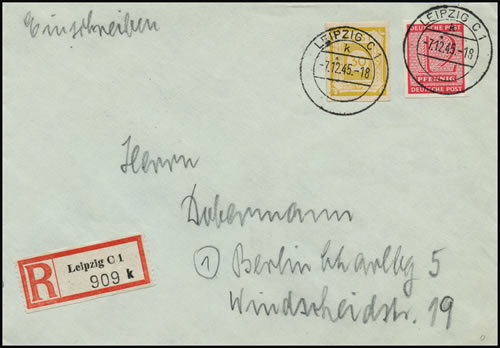 Einschreiben
LEIPZIG C 1
k
-7.12.45.-18
30
LEIPZIG C 1
k
-7.12.45.-18
DEUTSCHE POST
12
PFENNIG
DEUTSCHE POST
Herrn
Dobermann
① Berlin Charlbg 5
Windscheidstr. 19
R
Leipzig C 1
909 k